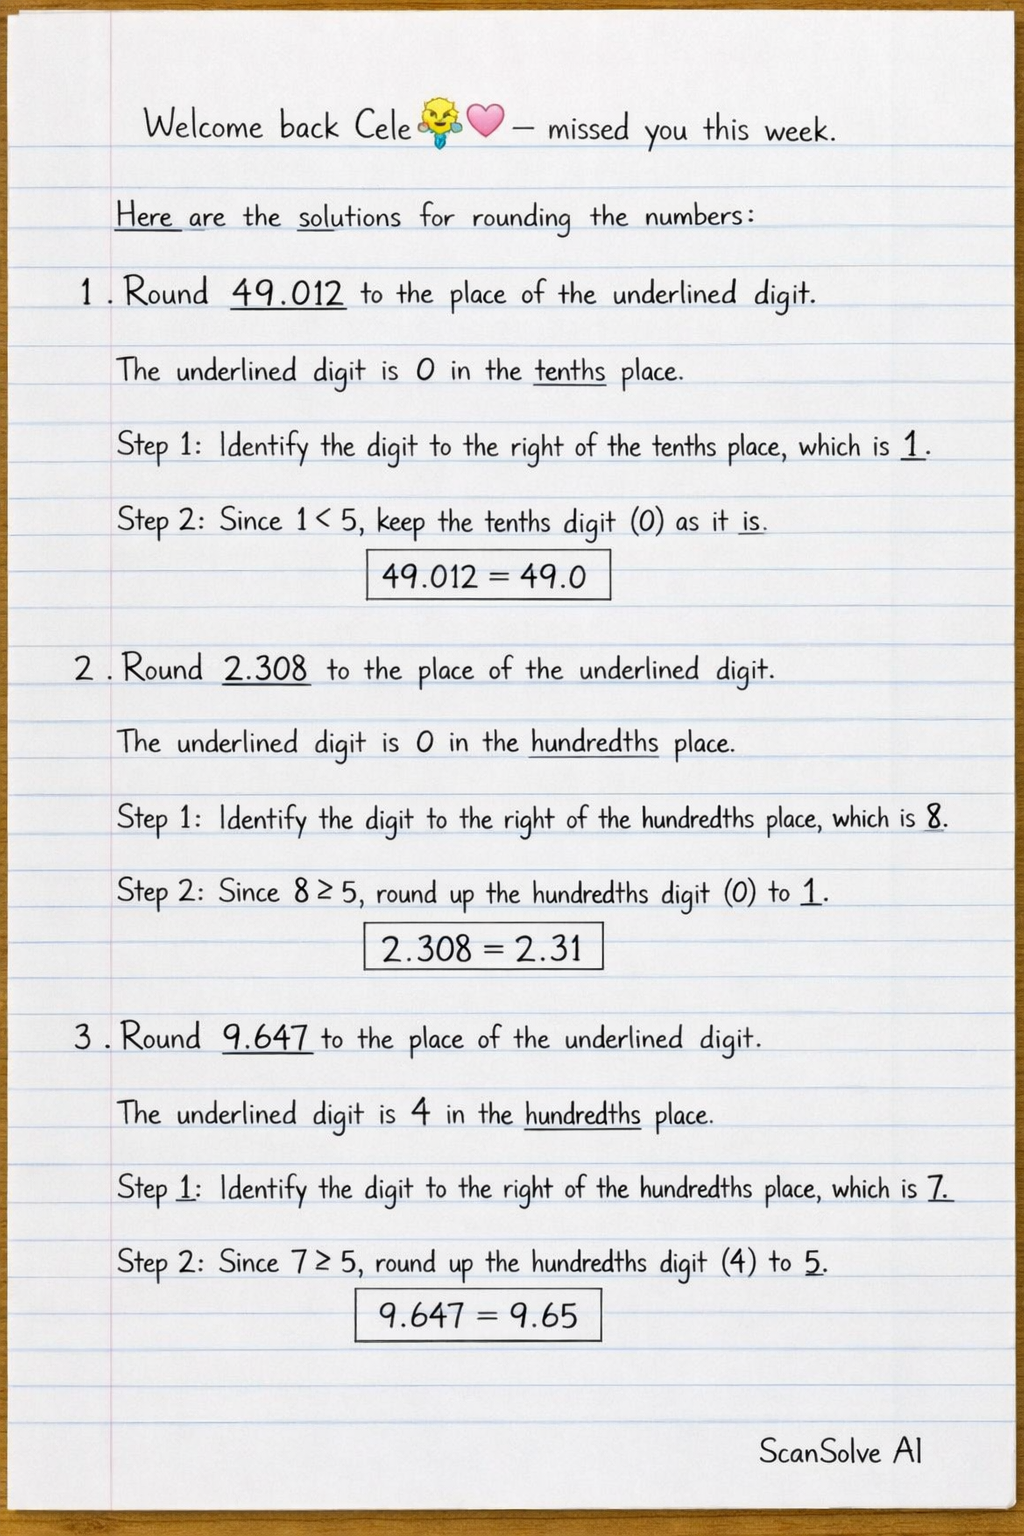 Welcome back Cele — missed you this week.
Here are the solutions for rounding the numbers:
1. Round 49.012 to the place of the underlined digit.
The underlined digit is 0 in the tenths place.
Step 1: Identify the digit to the right of the tenths place, which is 1.
Step 2: Since 1 < 5, keep the tenths digit (0) as it is.
49.012 = 49.0
2. Round 2.308 to the place of the underlined digit.
The underlined digit is 0 in the hundredths place.
Step 1: Identify the digit to the right of the hundredths place, which is 8.
Step 2: Since 8 ≥ 5, round up the hundredths digit (0) to 1.
2.308 = 2.31
3. Round 9.647 to the place of the underlined digit.
The underlined digit is 4 in the hundredths place.
Step 1: Identify the digit to the right of the hundredths place, which is 7.
Step 2: Since 7 ≥ 5, round up the hundredths digit (4) to 5.
9.647 = 9.65
ScanSolve AI